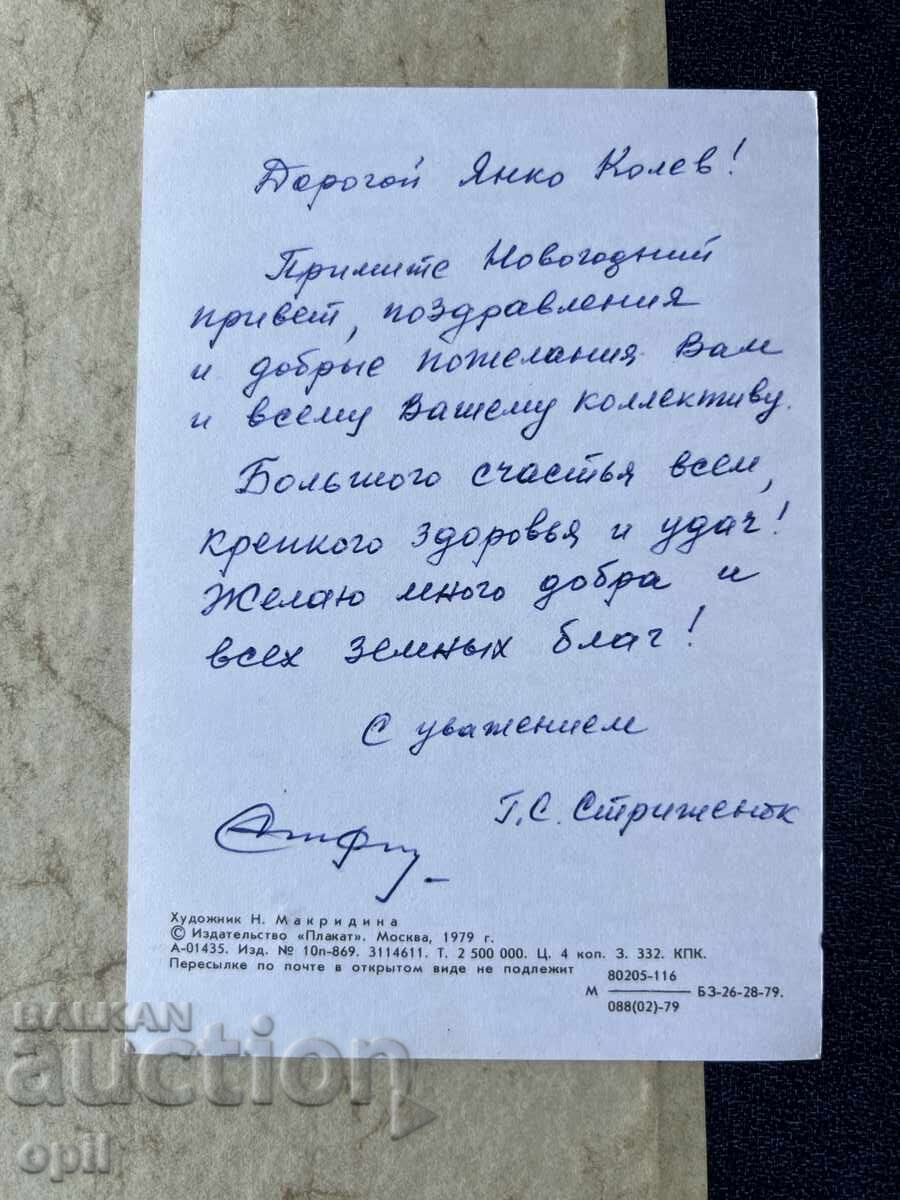 Дорогой Янко Колев!
Примите Новогодний
привет, поздравления
и добрые пожелания Вам
и всему Вашему коллективу.
Большого счастья всем,
крепкого здоровья и удач!
Желаю много добра и
всех земных благ!
С уважением
Г.С. Стриженок
Художник Н. Макридина
© Издательство «Плакат». Москва, 1979 г.
А-01435. Изд. № 10п-869. 3114611. Т. 2 500 000. Ц. 4 коп. З. 332. КПК.
Пересылке по почте в открытом виде не подлежит
80205-116
М БЗ-26-28-79.
088(02)-79
BALKAN
auction
opil